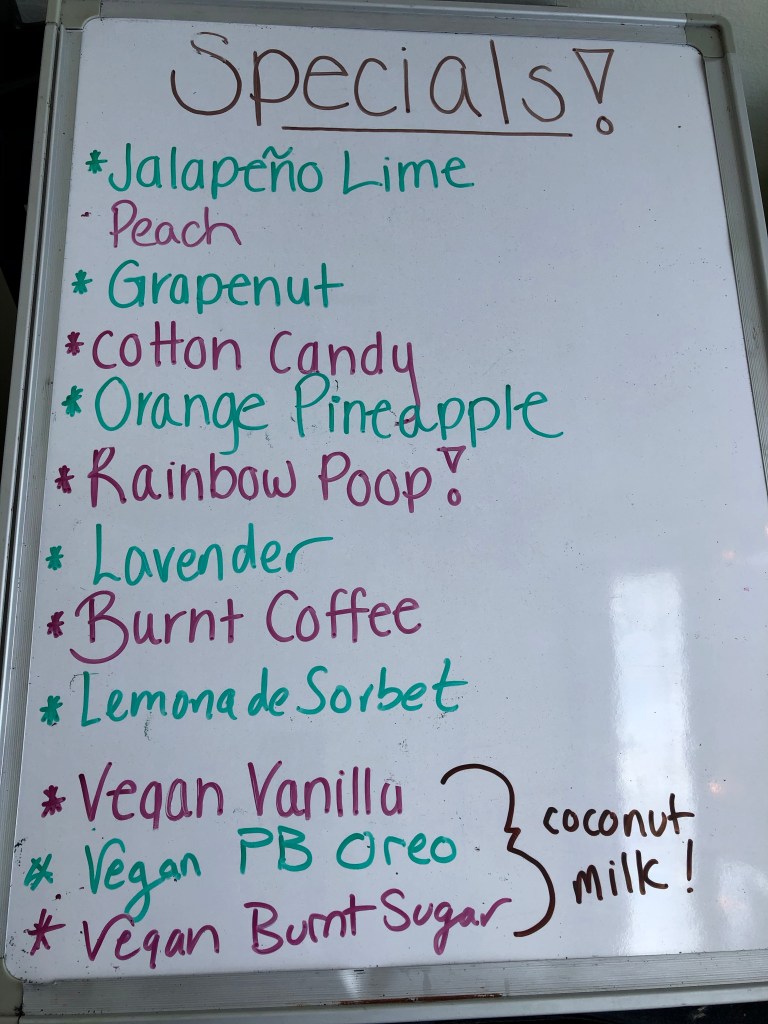 Specials!
*Jalapeño Lime
Peach
* Grapenut
*Cotton Candy
* Orange Pineapple
* Rainbow Poop!
* Lavender
* Burnt Coffee
* Lemonade Sorbet
* Vegan Vanilla
* Vegan PB Oreo
* Vegan Burnt Sugar
coconut
milk!